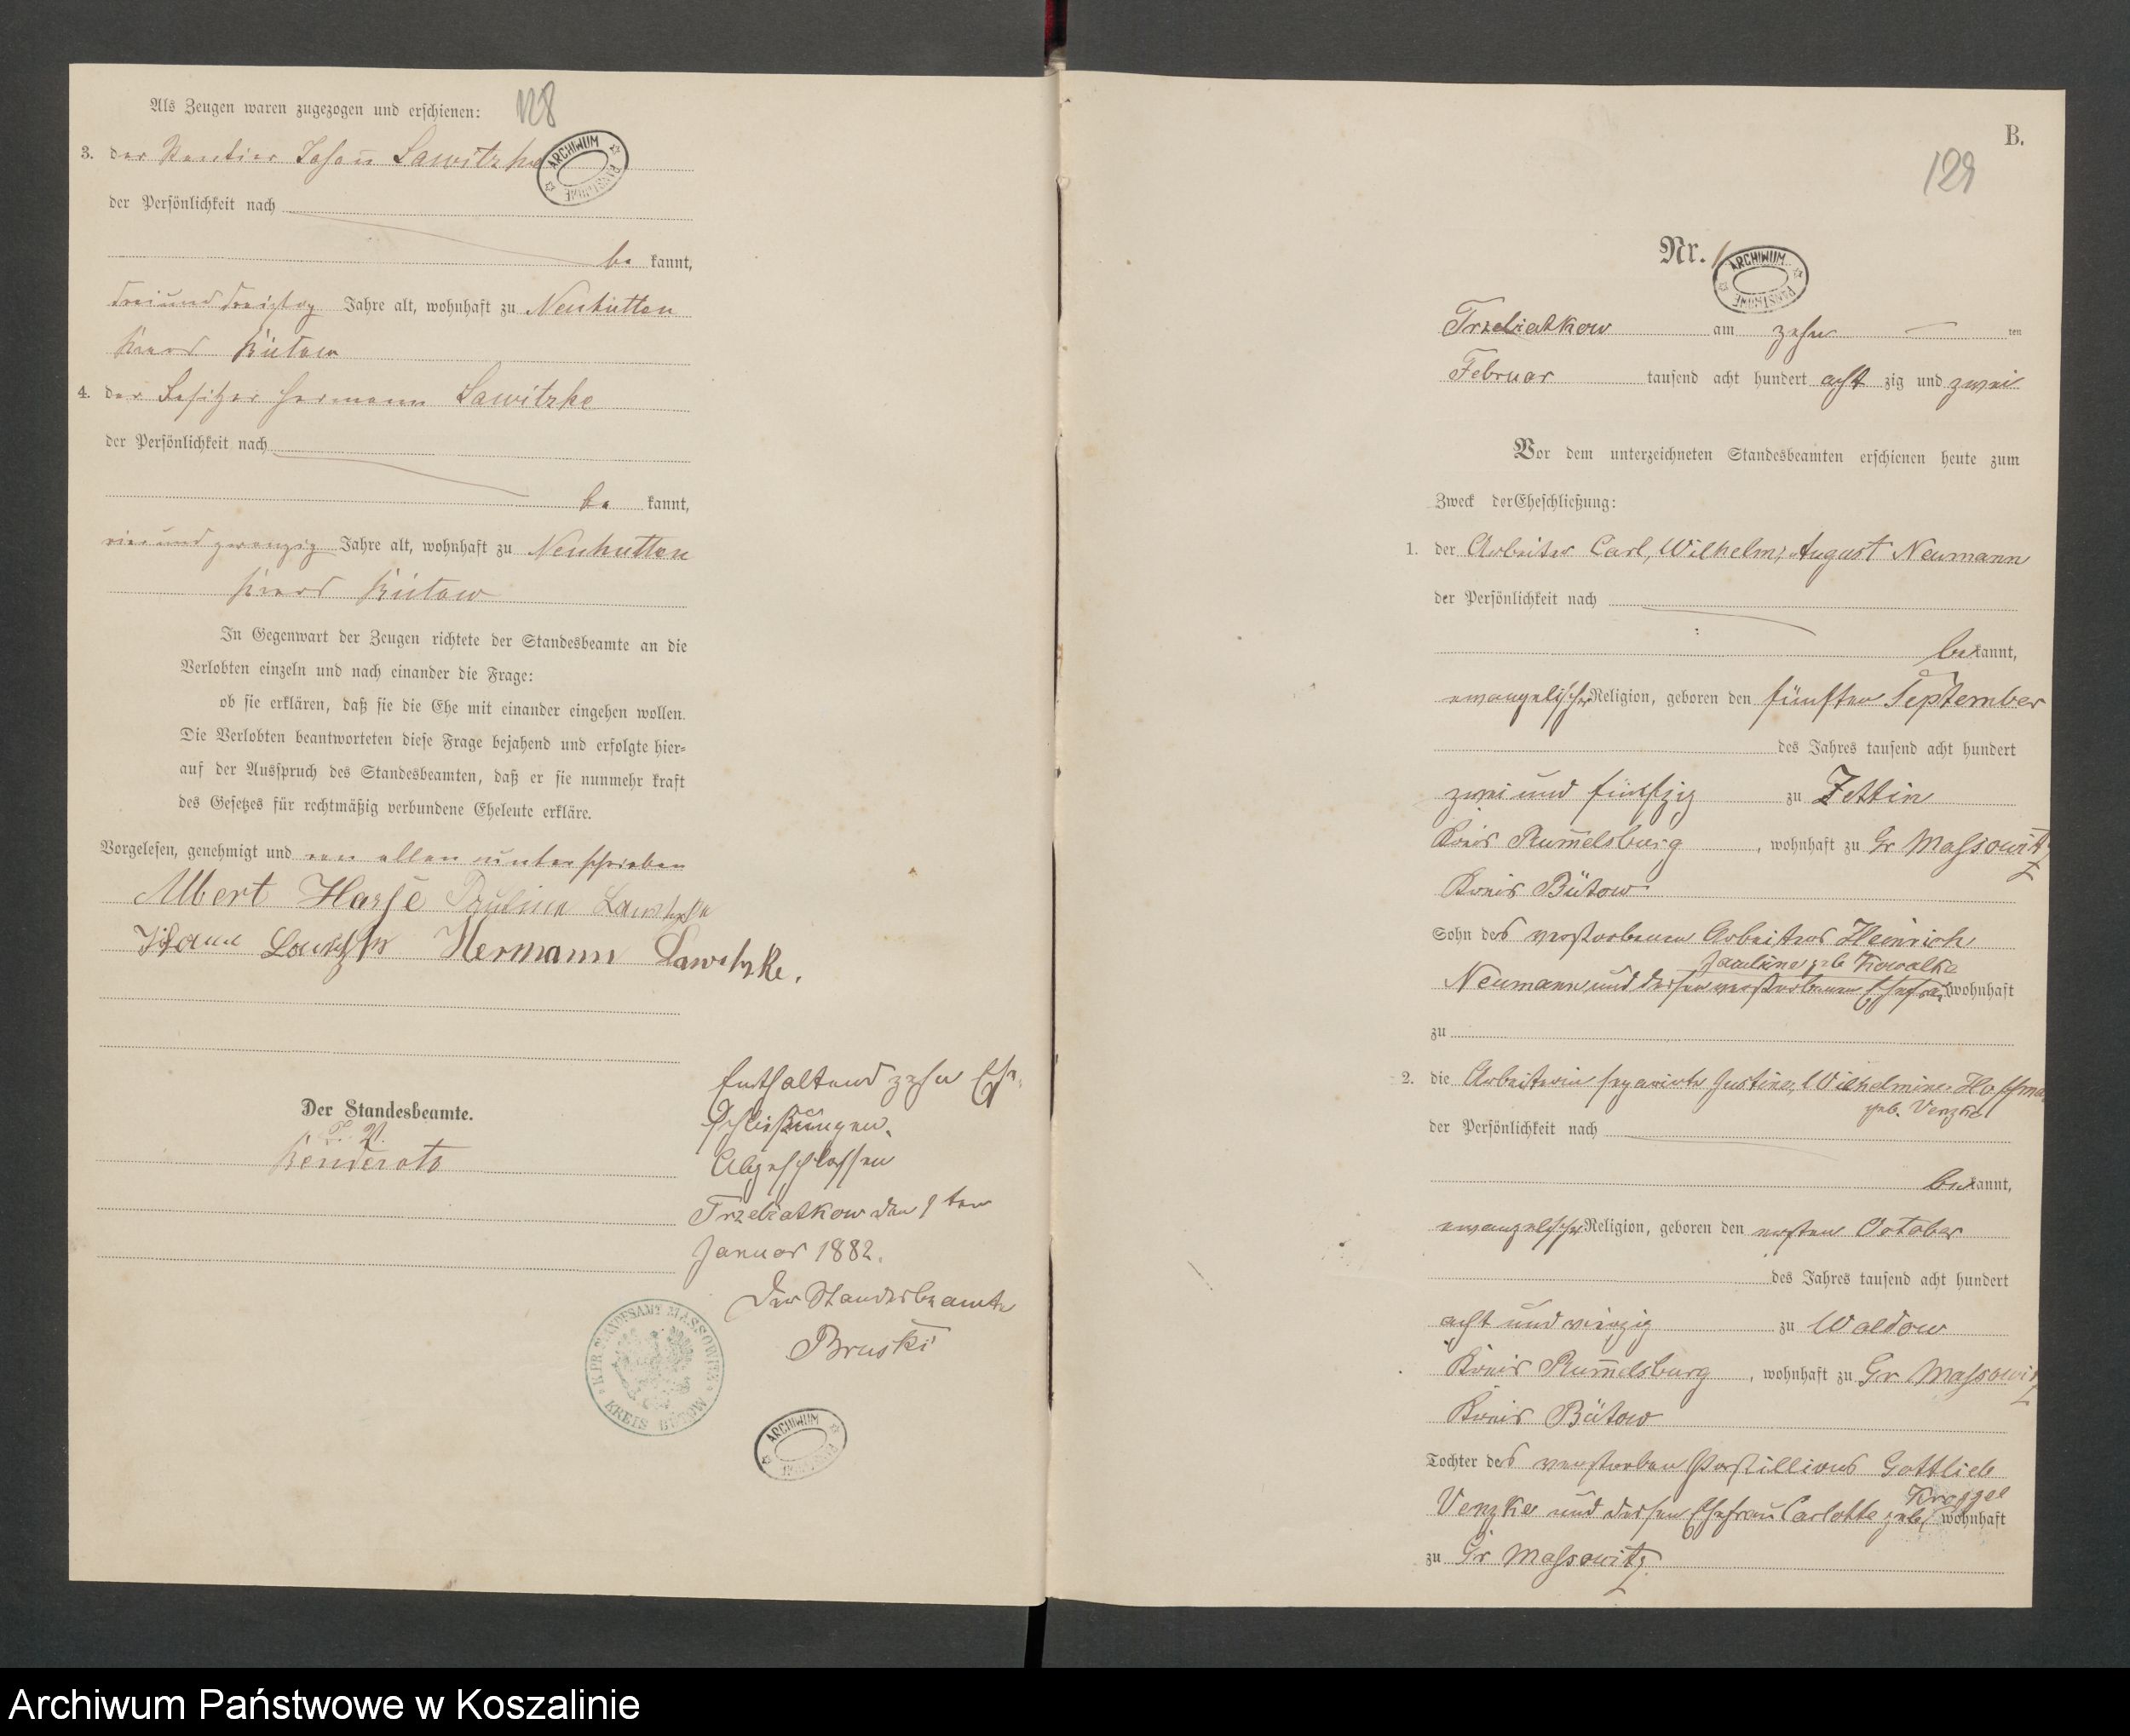 Als Zeugen waren zugezogen und erschienen:
128
3. der Rentier Johann Lawitzke
ARCHIWUM PAŃSTWOWE
der Persönlichkeit nach
be kannt,
dreiunddreißig Jahre alt, wohnhaft zu Neuhütten
Kreis Bütow
4. der Besitzer Hermann Lawitzke
der Persönlichkeit nach
be kannt,
vierundzwanzig Jahre alt, wohnhaft zu Neuhütten
Kreis Bütow
In Gegenwart der Zeugen richtete der Standesbeamte an die
Verlobten einzeln und nach einander die Frage:
ob sie erklären, daß sie die Ehe mit einander eingehen wollen.
Die Verlobten beantworteten diese Frage bejahend und erfolgte hier-
auf der Ausspruch des Standesbeamten, daß er sie nunmehr kraft
des Gesetzes für rechtmäßig verbundene Eheleute erkläre.
Vorgelesen, genehmigt und von allen unterschrieben
Albert Hasse Pauline Lawitzke
Johann Lawitzke Hermann Lawitzke.
Der Standesbeamte.
I. V.
Enthaltend zehn Ehe-
schließungen.
Abgeschlossen
Trzebiatkow den 9ten
Januar 1882.
Der Standesbeamte
Bruski
K. PR. STANDESAMT MASSOWITZ
KREIS BÜTOW
ARCHIWUM PAŃSTWOWE
B.
129
Nr. 1
ARCHIWUM PAŃSTWOWE
Trzebiatkow am zehn ten
Februar tausend acht hundert acht zig und zwei
Vor dem unterzeichneten Standesbeamten erschienen heute zum
Zweck der Eheschließung:
1. der Arbeiter Carl, Wilhelm, August Neumann
der Persönlichkeit nach
be kannt,
evangelischer Religion, geboren den fünften September
des Jahres tausend acht hundert
zwei und fünfzig zu Zettin
Kreis Rummelsburg, wohnhaft zu Gr Massowitz
Kreis Bütow
Sohn des verstorbenen Arbeiters Heinrich
Pauline geb Kowalke
Neumann und dessen verstorbenen Ehefrau wohnhaft
zu
2. die Arbeiterin separirte Justine, Wilhelmine Hoffma
geb. Venzke
der Persönlichkeit nach
be kannt,
evangelischer Religion, geboren den ersten October
des Jahres tausend acht hundert
acht und vierzig zu Waldow
Kreis Rummelsburg, wohnhaft zu Gr Massowitz
Kreis Bütow
Tochter des verstorben Postillions Gottlieb
Venzke und dessen Ehefrau Carlotte geb wohnhaft
zu Gr Massowitz.
Archiwum Państwowe w Koszalinie